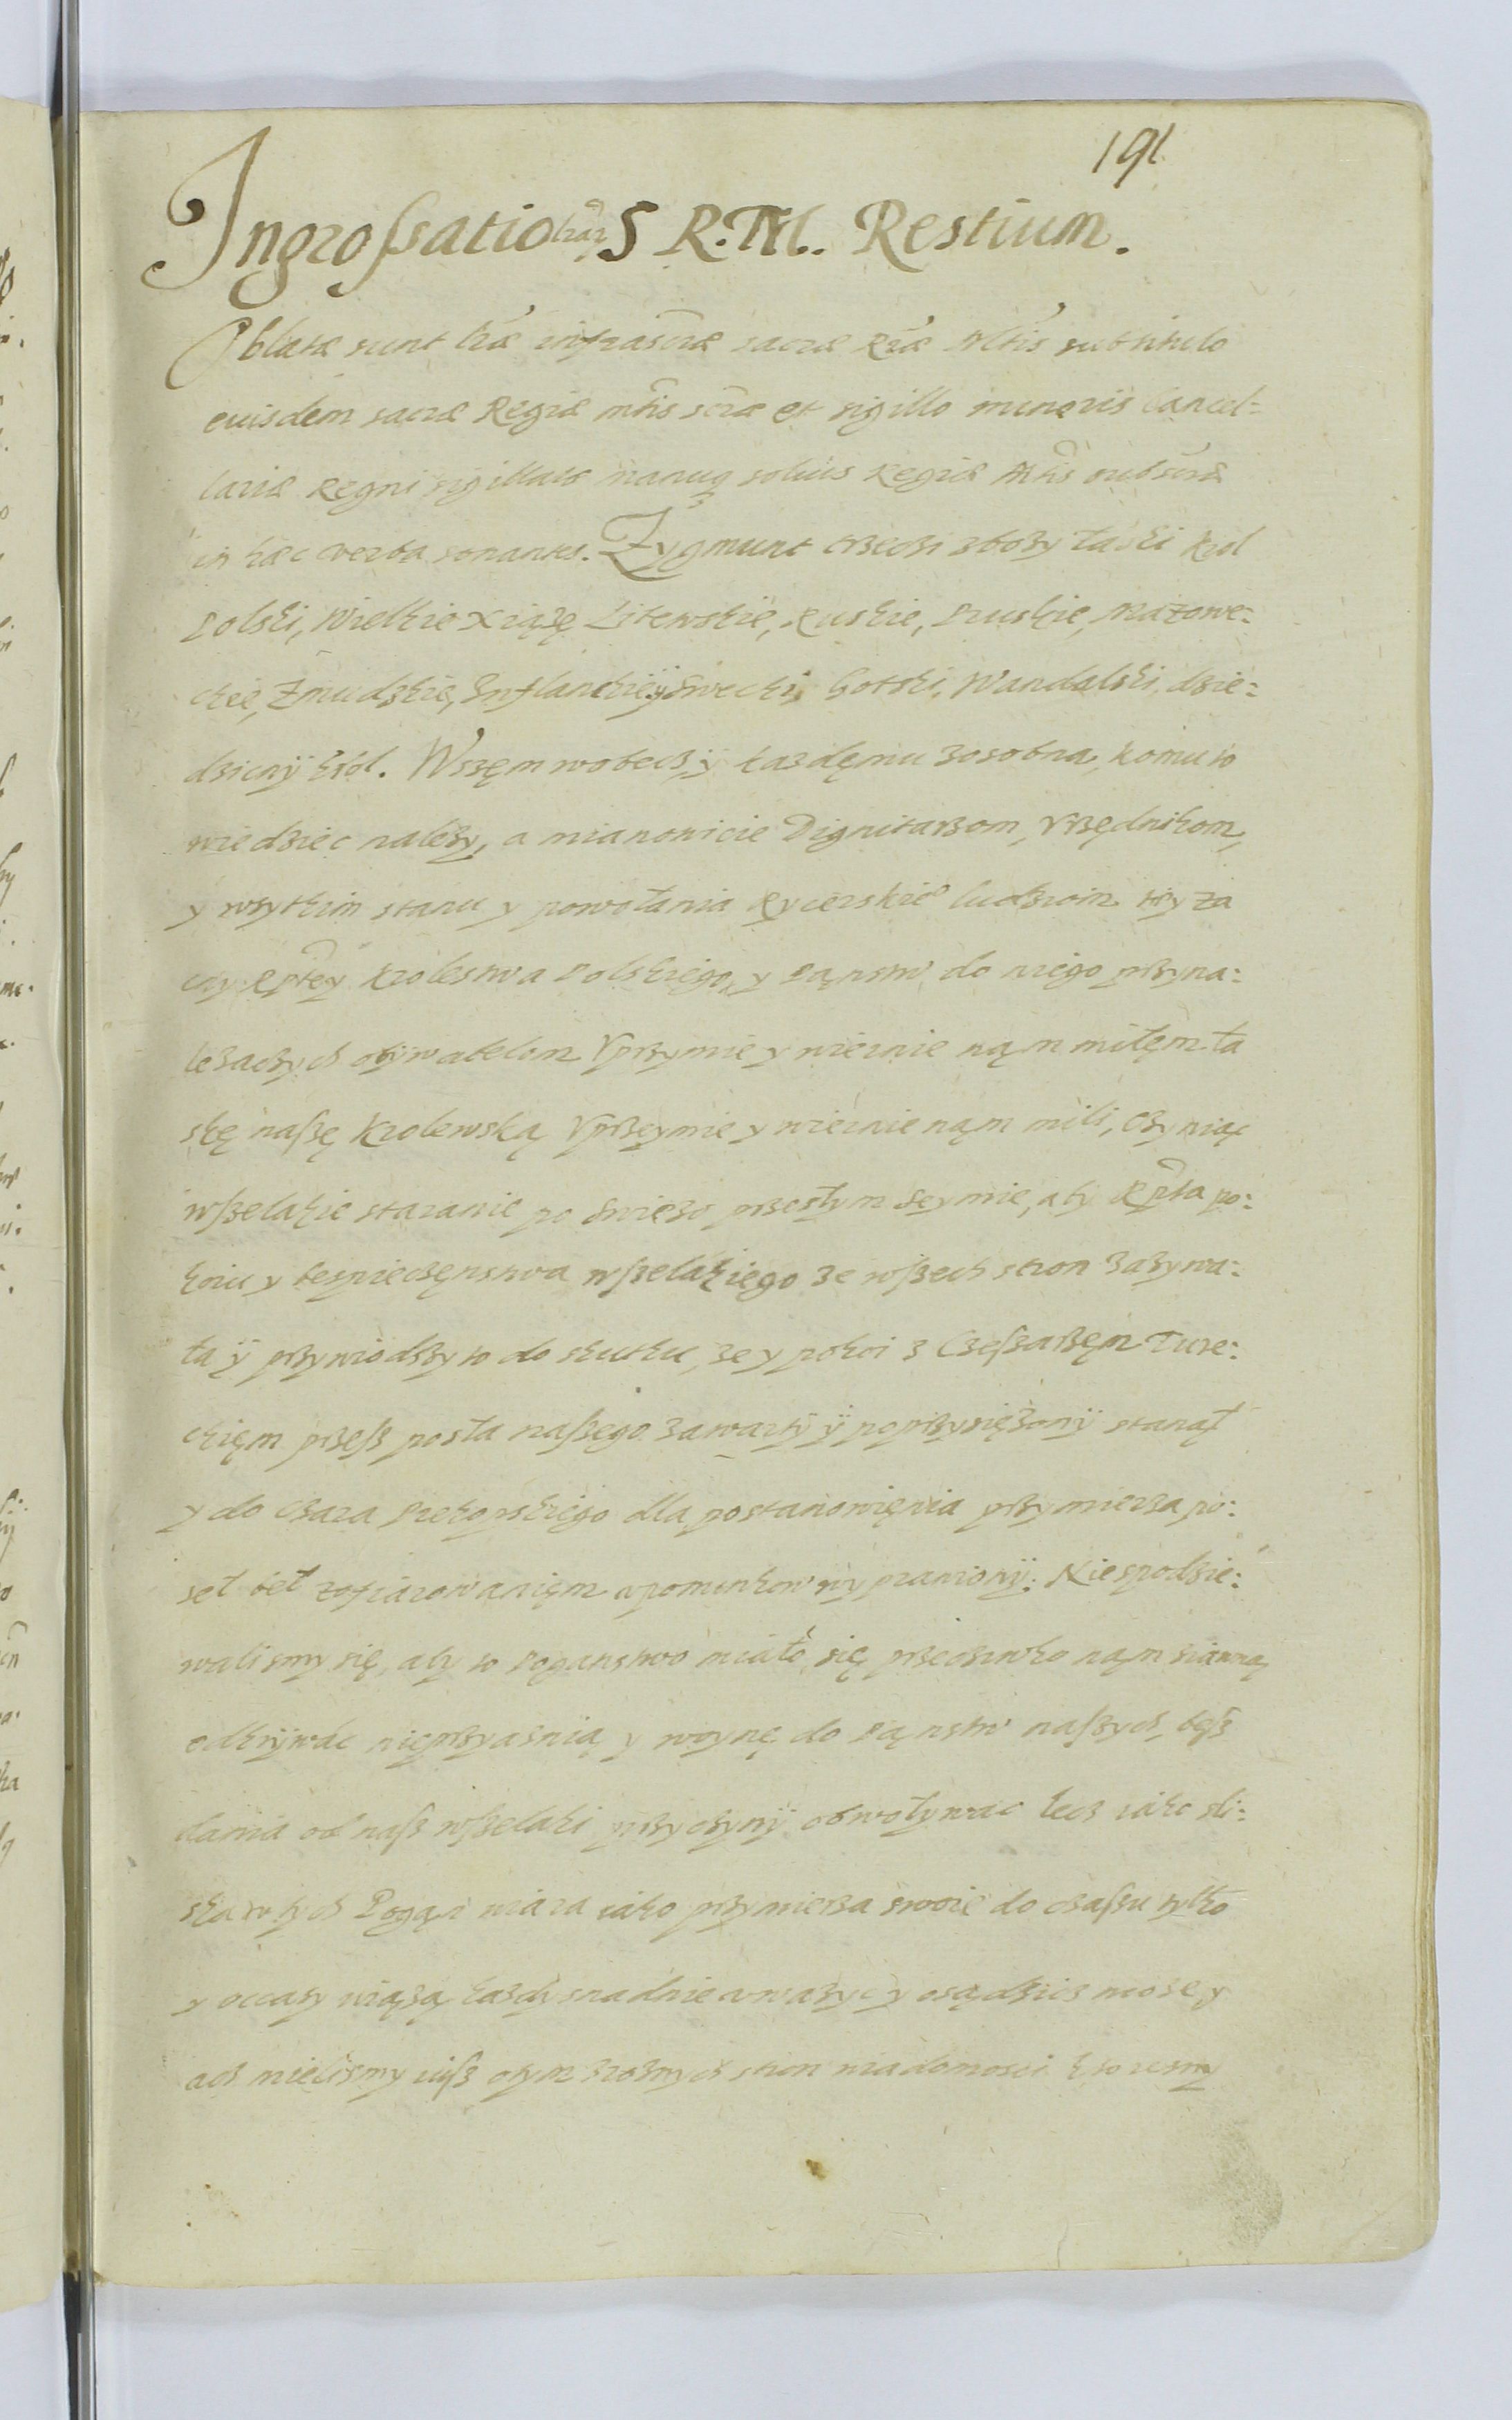 191
Ingrossatio lrar S R. M. Restium.
Oblatæ sunt lræ infrascræ sacræ Ræ Mtis sub titulo
eiusdem sacræ Regiæ mtis scræ et sigillo minoris Cancel=
lariæ Regni sigillatæ manuq solius Regiæ Mtis subscræ
in hæc verba sonantes. Zygmunt trzeczi z bozy łaski krol
Polski, Wielkie Xiąże Litewskie, Ruskie, Pruskie, Mazowe=
ckie, Zmudzkie, Inflanckie y Swecki, Gotski, Wandalski, dzie=
dzicny krol. Wszęm wobecz y kazdęmu zosobna, komu to
wiedziec nalezy, a mianowicie Dignitarzom, Vrzędnikom,
y wsytkim stanu y powołania Rycerskie ludziom tey za
cny Rptey Krolestwa Polskiego, y Pąnstw do niego przyna=
lezaczych obywatelom Vprzymie y wiernie nąm miłęm ła
skę naszę Krolewską Vprzeymie y wiernie nąm mili, Czyniąc
wszelakie staranie po swiezo przesłym Seymie, aby Rpta po=
koiu y bespieczęnstwa wszelakiego ze wszech stron zazywa=
ła y przywiodszy to do skutku, ze y pokoi z Czeszarzęm Ture=
ckięm przesz posła naszego zawarty y poprzysięzony stanął
y do Czara Prekopskiego dla postanowięnia przymierza po=
seł beł zofiarowanięm upominkow wyprawiony. Niespodzie=
walismy się, aby to Poganstwo miało się przeciwko nąm ziawną
odkrywac nieprzyaznią y woynę do Pąnstw naszych, besz
dania od nasz wszelaki przyczyny obwoływac lecz iako sli=
ska tych Pogan wiara iako przymierza swoie do czaszu tylko
y occazy wiążą kazdy snadnie uwazyc y osądzicz moze y
ach mielismy iusz otym z roznych stron wiadomosci ktoresmy